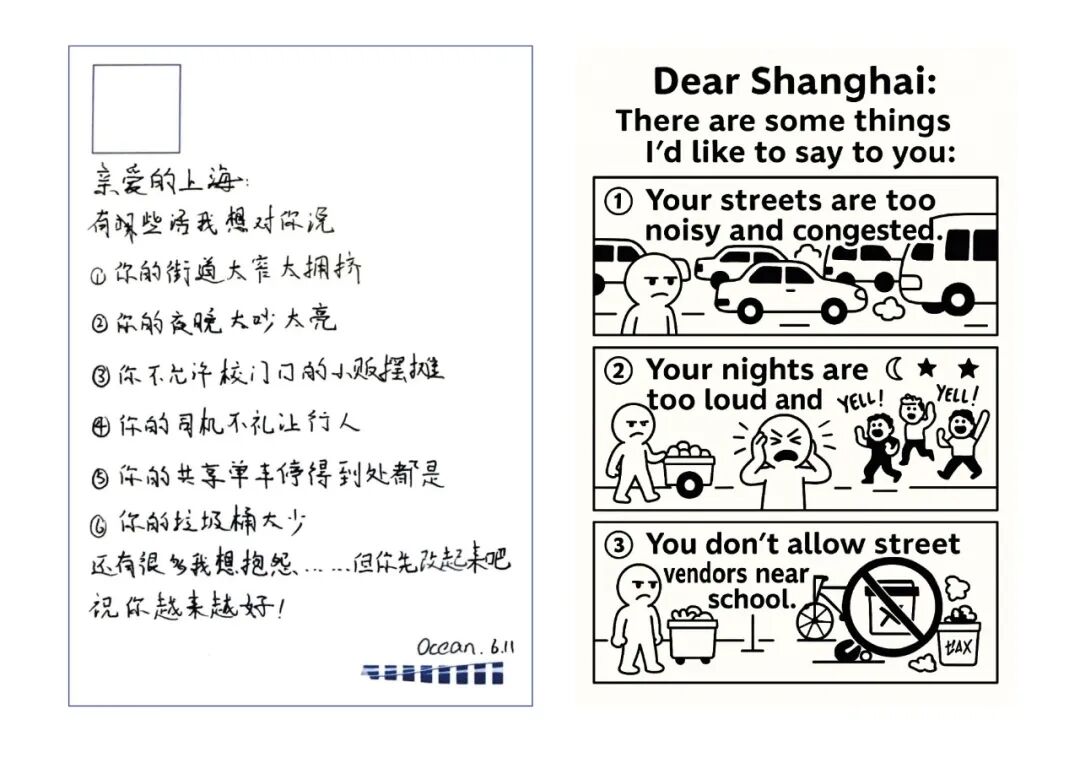 亲爱的上海:
有哪些话我想对你说
①你的街道太窄太拥挤
②你的夜晚太吵太亮
③你不允许校门口的小贩摆摊
④你的司机不礼让行人
⑤你的共享单车停得到处都是
⑥你的垃圾桶太少
还有很多我想抱怨……但你先改起来吧
祝你越来越好!
Ocean. 6.11
Dear Shanghai:
There are some things
I'd like to say to you:
① Your streets are too
noisy and congested.
② Your nights are
too loud and
YELL!
YELL!
③ You don't allow street
vendors near
school.